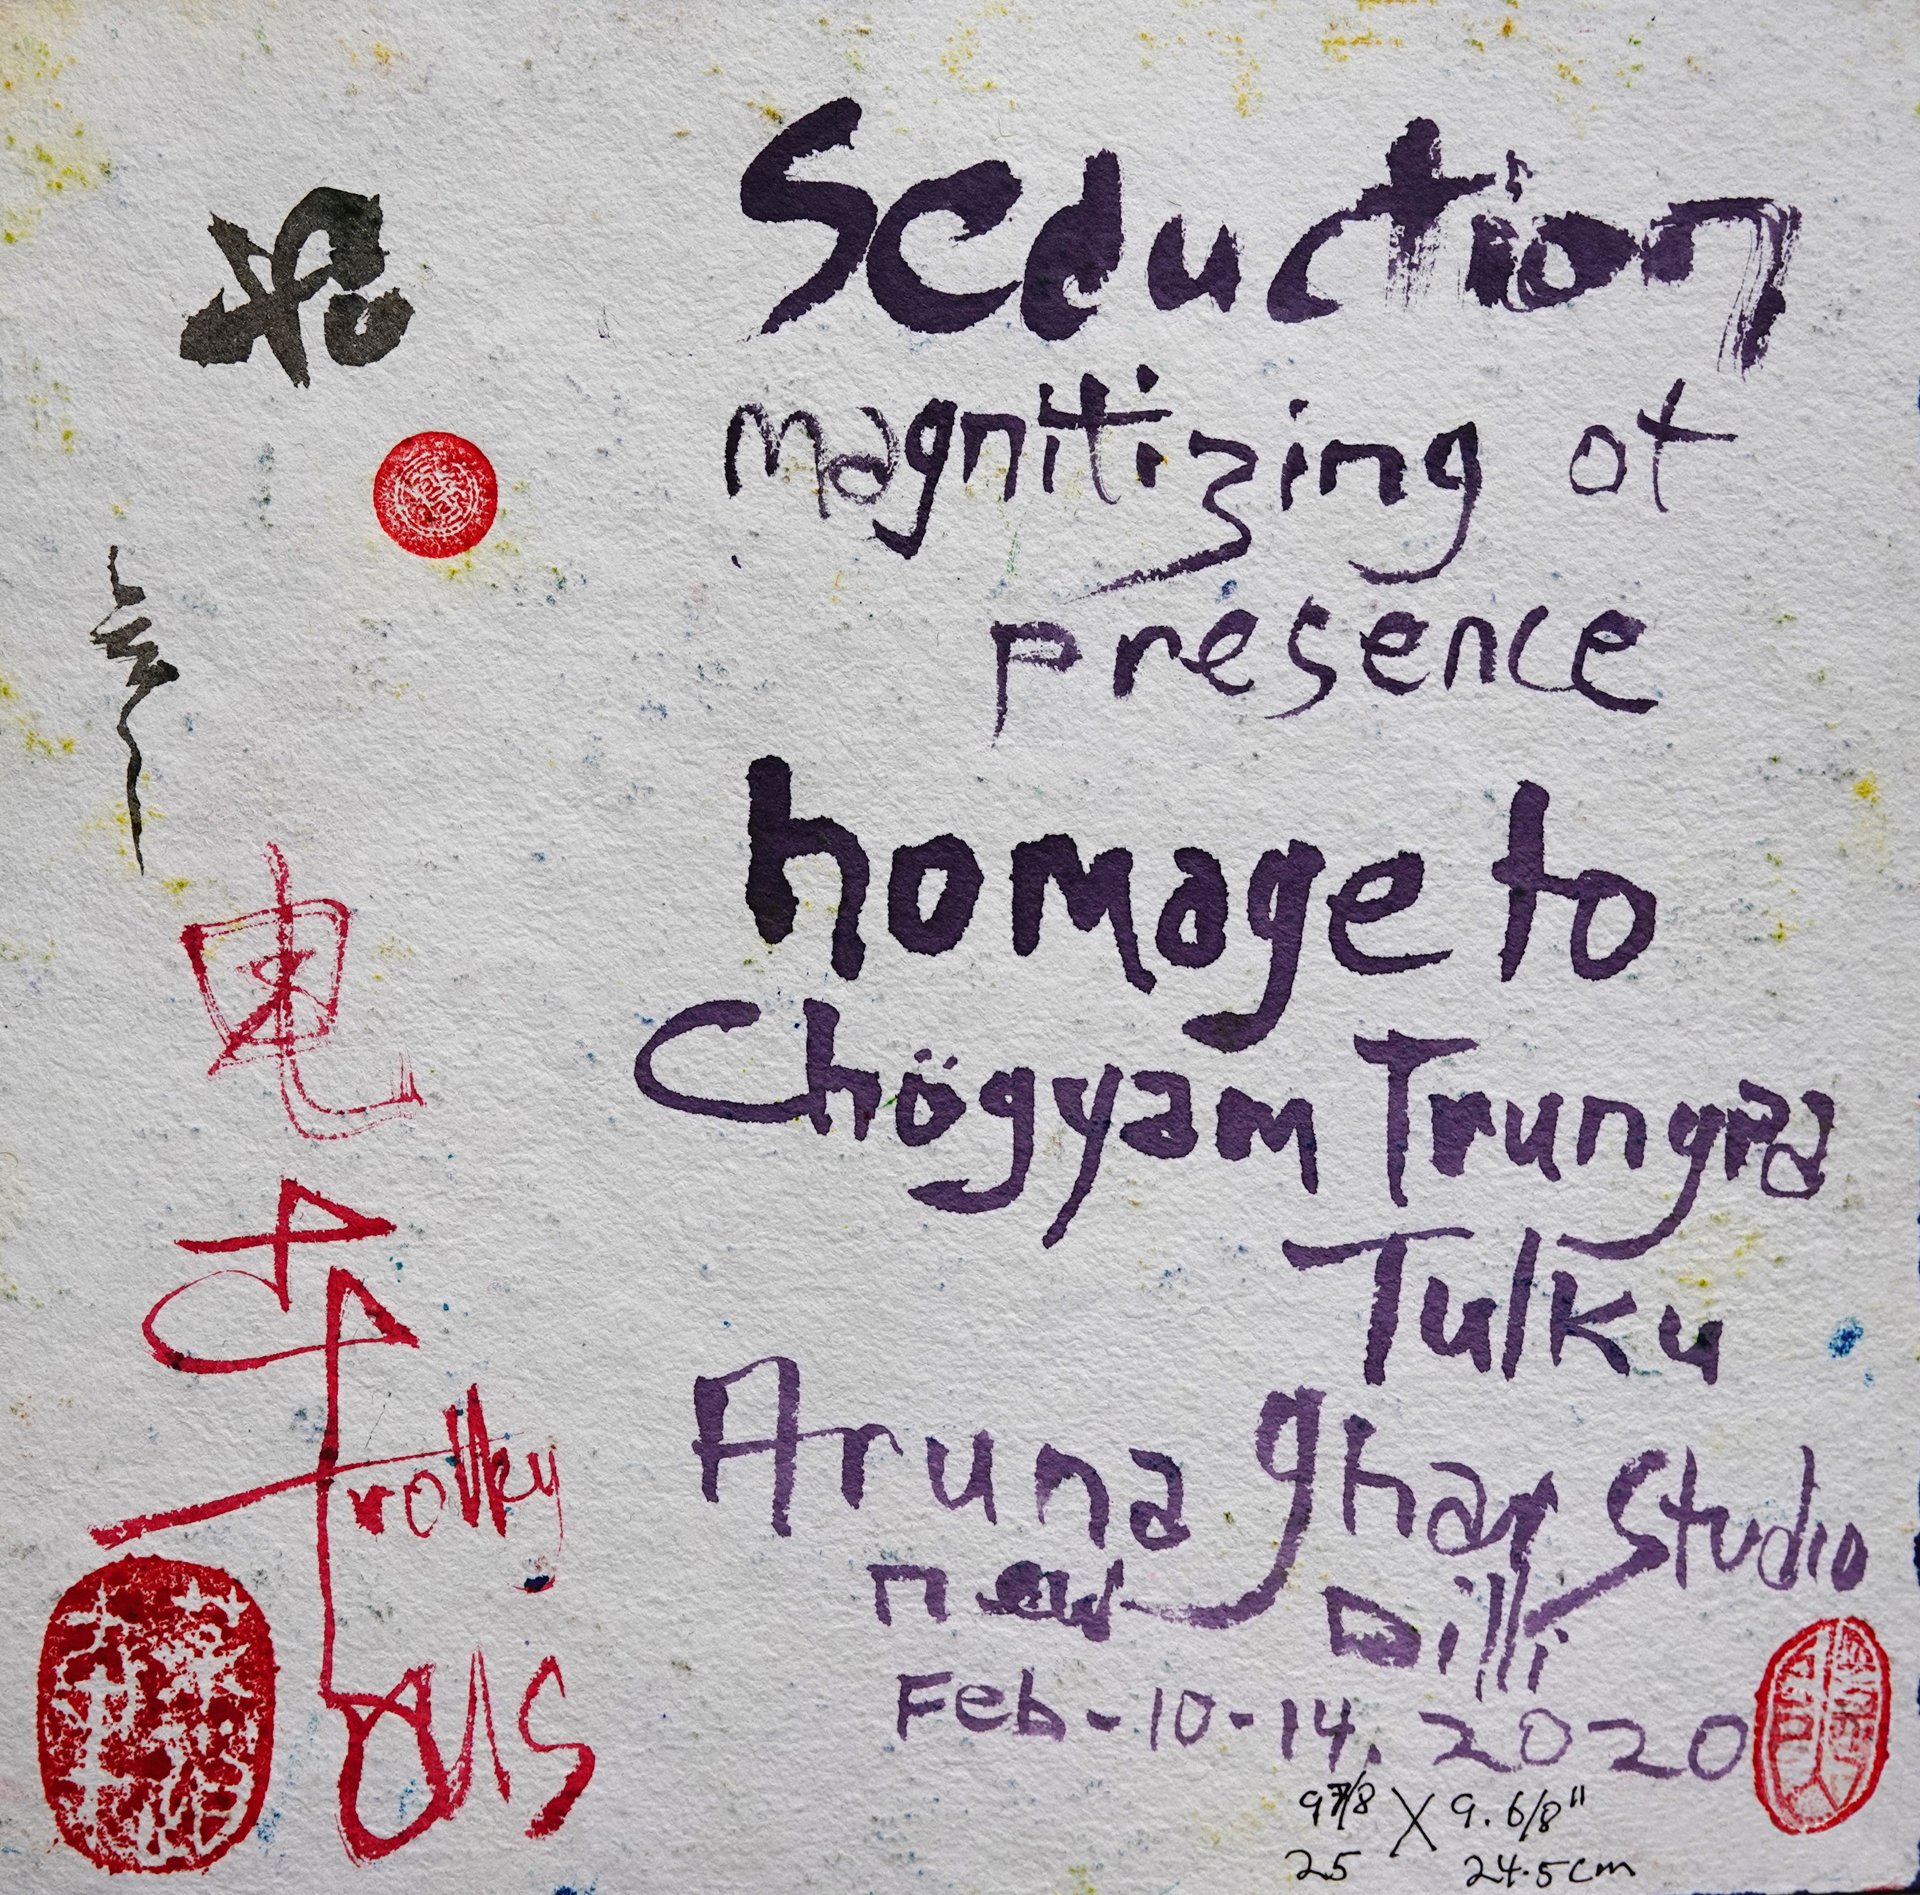 Seduction
magnitizing of
presence
homage to
Chögyam Trungpa
Tulku
Aruna ghar Studio
new Dilli
Feb-10-14. 2020
9 7/8 X 9.6/8"
25 24.5cm
Trolley
bus